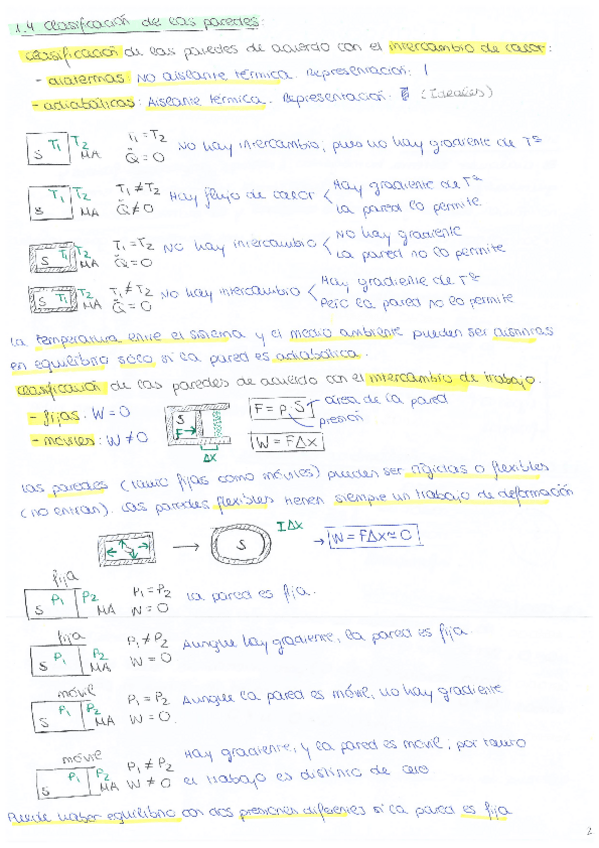 1.4 Clasificación de las paredes:
Clasificación de las paredes de acuerdo con el intercambio de calor:
- diatermas: No aislante térmica. Representación: |
- adiabáticas: Aislante térmica. Representación: (Ideales)
S T1 T2 MA T1 = T2 Q̇ = 0 No hay intercambio, pues no hay gradiente de Tª
S T1 T2 MA T1 ≠ T2 Q̇ ≠ 0 Hay flujo de calor < Hay gradiente de Tª
La pared lo permite
S T1 T2 MA T1 = T2 Q̇ = 0 No hay intercambio < No hay gradiente
La pared no lo permite
S T1 T2 MA T1 ≠ T2 Q̇ = 0 No hay intercambio < Hay gradiente de Tª
Pero la pared no lo permite
La temperatura entre el sistema y el medio ambiente pueden ser distintas
en equilibrio solo si la pared es adiabática.
Clasificación de las paredes de acuerdo con el intercambio de trabajo.
- fijas: W = 0
- móviles: W ≠ 0
S F Δx
F = p·S área de la pared
presión
W = FΔx
Las paredes (tanto fijas como móviles) pueden ser rígidas o flexibles
(no entran). Las paredes flexibles tienen siempre un trabajo de deformación
→ S I Δx → W = FΔx ≈ 0
fija
S P1 P2 MA P1 = P2 W = 0 La pared es fija.
fija
S P1 P2 MA P1 ≠ P2 W = 0 Aunque hay gradiente, la pared es fija.
móvil
S P1 P2 MA P1 = P2 W = 0. Aunque la pared es móvil, no hay gradiente
móvil
S P1 P2 MA P1 ≠ P2 W ≠ 0 Hay gradiente, y la pared es móvil, por tanto
el trabajo es distinto de cero
Puede haber equilibrio con dos presiones diferentes si la pared es fija
2